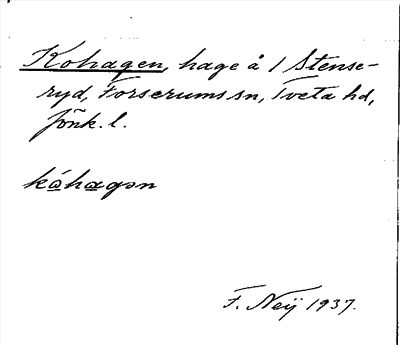 Kohagen, hage å 1 Stense-
ryd, Forserums sn, Tveta hd,
Jönk. l.
kóhagən
F. Neij 1937.